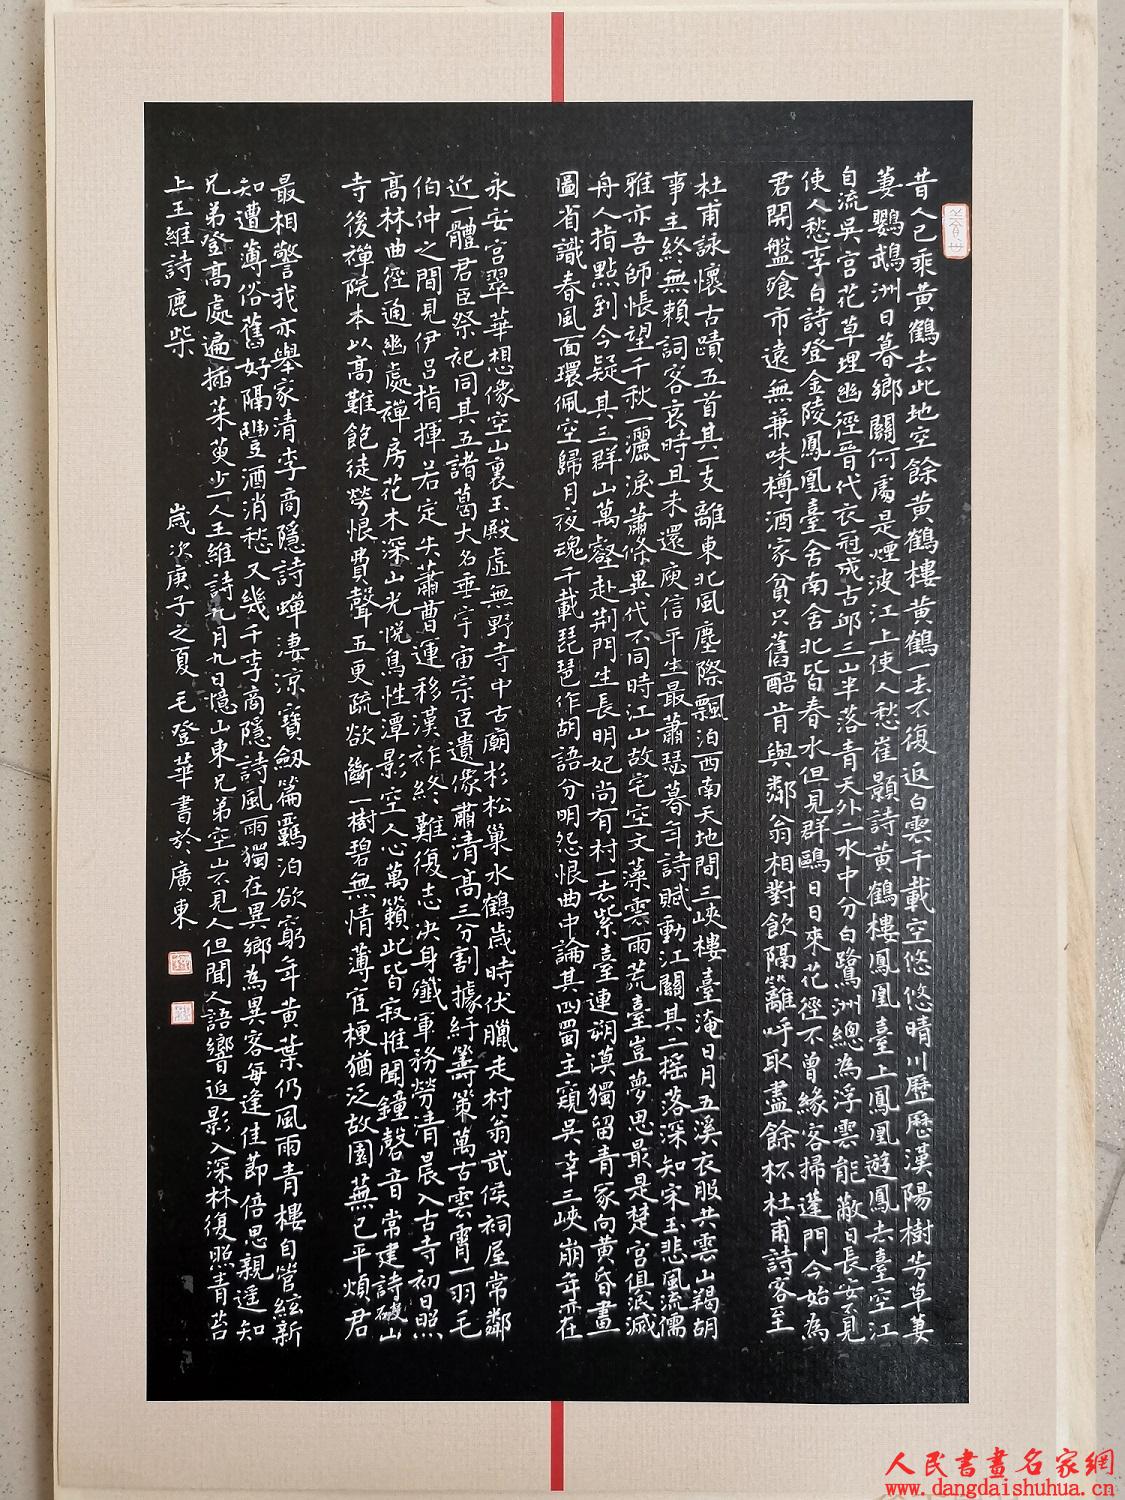 昔人已乘黃鶴去此地空餘黃鶴樓黃鶴一去不復返白雲千載空悠悠晴川歷歷漢陽樹芳草萋
萋鸚鵡洲日暮鄉關何處是煙波江上使人愁崔顥詩黃鶴樓鳳凰臺上鳳凰遊鳳去臺空江
自流吳宮花草埋幽徑晉代衣冠成古邱三山半落青天外二水中分白鷺洲總為浮雲能蔽日長安不見
使人愁李白詩登金陵鳳凰臺舍南舍北皆春水但見群鷗日日來花徑不曾緣客掃蓬門今始為
君開盤飱市遠無兼味樽酒家貧只舊醅肯與鄰翁相對飲隔籬呼取盡餘杯杜甫詩客至
杜甫詠懷古蹟五首其一支離東北風塵際飄泊西南天地間三峽樓臺淹日月五溪衣服共雲山羯胡
事主終無賴詞客哀時且未還庾信平生最蕭瑟暮年詩賦動江關其二搖落深知宋玉悲風流儒
雅亦吾師悵望千秋一灑淚蕭條異代不同時江山故宅空文藻雲雨荒臺豈夢思最是楚宮俱泯滅
舟人指點到今疑其三群山萬壑赴荊門生長明妃尚有村一去紫臺連朔漠獨留青冢向黃昏畫
圖省識春風面環佩空歸月夜魂千載琵琶作胡語分明怨恨曲中論其四蜀主窺吳幸三峽崩年亦在
永安宮翠華想像空山裏玉殿虛無野寺中古廟杉松巢水鶴歲時伏臘走村翁武侯祠屋常鄰
近一體君臣祭祀同其五諸葛大名垂宇宙宗臣遺像肅清高三分割據紆籌策萬古雲霄一羽毛
伯仲之間見伊呂指揮若定失蕭曹運移漢祚終難復志決身殲軍務勞清晨入古寺初日照
高林曲徑通幽處禪房花木深山光悅鳥性潭影空人心萬籟此皆寂惟聞鐘磬音常建詩破山
寺後禪院本以高難飽徒勞恨費聲五更疏欲斷一樹碧無情薄宦梗猶泛故園蕪已平煩君
最相警我亦舉家清李商隱詩蟬淒涼寶劍篇羈泊欲窮年黃葉仍風雨青樓自管絃新
知遭薄俗舊好隔豐酒消愁又幾千李商隱詩風雨獨在異鄉為異客每逢佳節倍思親遥知
兄弟登高處遍插茱萸少一人王維詩九月九日憶山東兄弟空山不見人但聞人語響返影入深林復照青苔
上王維詩鹿柴
歲次庚子之夏毛登華書於廣東
人民書畫名家網
www.dangdaishuhua.cn